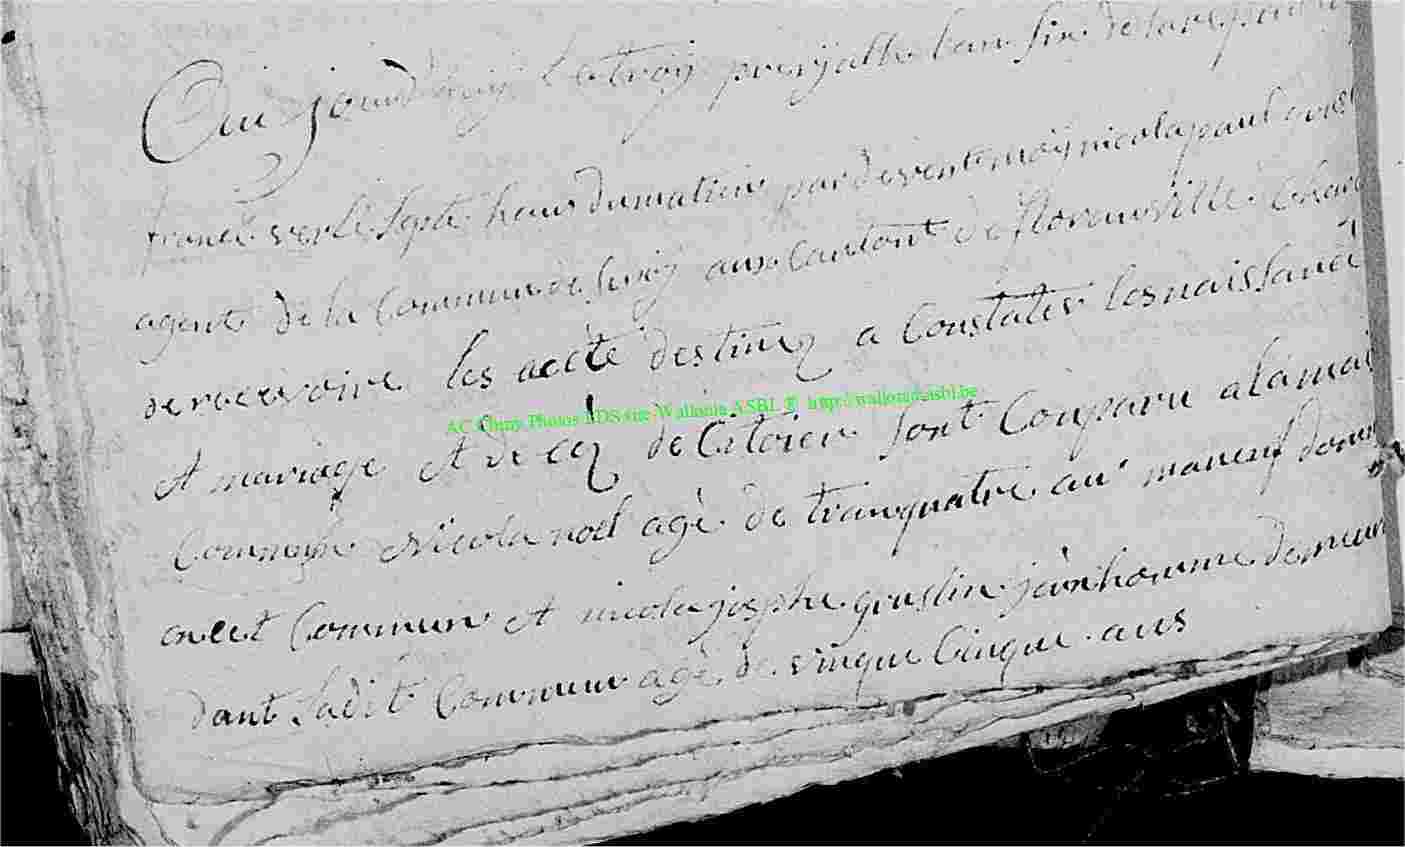 Oui jourdhuij le troij prerijalle l'an six de la republi
francé verle septe heur du matin pardevent moÿ nicola paul
agente de la Commun de Suxÿ aux Cantont de florainville Char
de recevoire les actte destinez a Constater les naissance
et mariage et de cez de Citoien sont Conparu a la mai
Commune Nicola noel agé de tranquatre an maneuf
en cet Commun et nicola josphe gouslin jeun homme demeur
dant ladit Commun agé de vinque Cinque ans
AC Chiny Photos EDS site Wallonia ASBL ® http://wallonia-asbl.be